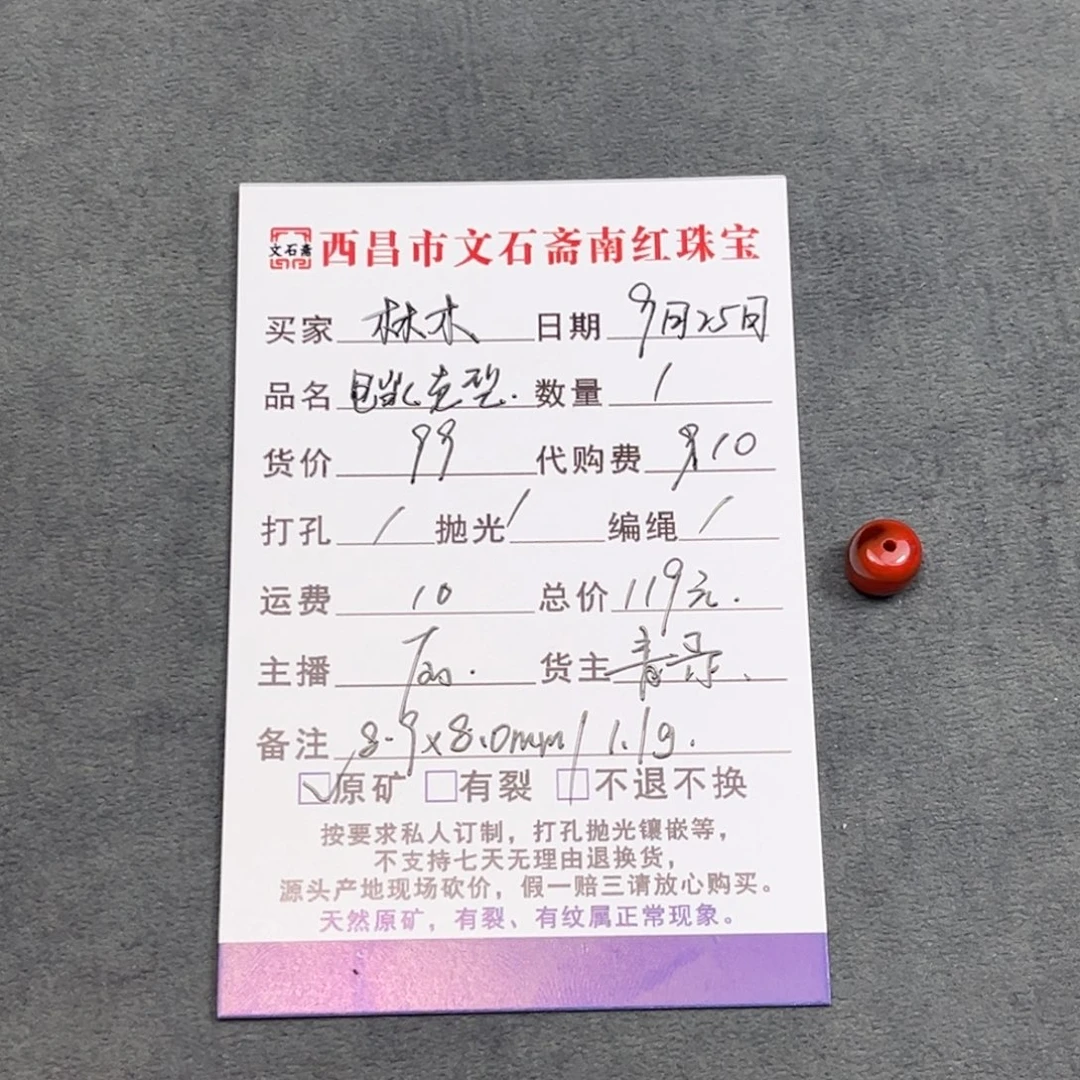 文石斋 西昌市文石斋南红珠宝
买家 林木 日期 9月25日
品名 数量 1
货价 99 代购费 10
打孔 / 抛光 / 编绳 /
运费 10 总价 119元.
主播 货主
备注 8.9x8.0mm/1.1g.
☑原矿 □有裂 □不退不换
按要求私人订制，打孔抛光镶嵌等，
不支持七天无理由退换货，
源头产地现场砍价，假一赔三请放心购买。
天然原矿，有裂、有纹属正常现象。